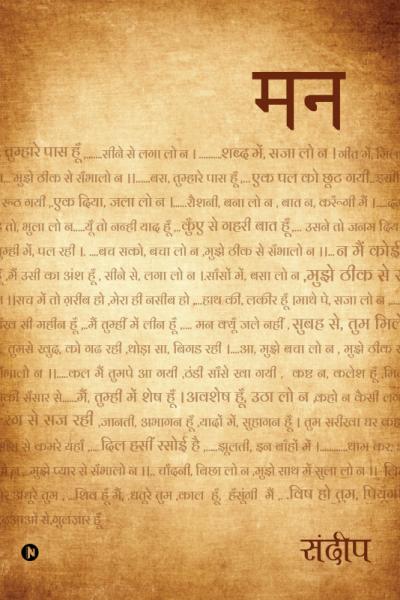 मन
तुम्हारे पास हूँ ,......सीने से लगा लो न । ..........शब्द में, सजा लो न । गीत में,
मुझे ठीक से सँभालो न ।।......बस, तुम्हारे पास हूँ ,...एक पल को छूठ गयी,
रूठ गयी ,..एक दिया, जला लो न ।.....रौशनी, बना लो न , बात न, करूँगी मैं ।
तो, भुला लो न.....यूँ तो नन्ही याद हूँ ,..कुँए से गहरी बात हूँ,... उसने तो जनम
में, पल रही । ....बच सको, बचा लो न ,मुझे ठीक से सँभालो न ।।... न मैं कोई
मैं उसी का अंश हूँ , सीने से, लगा लो न ।.साँसों में, बसा लो न ,मुझे ठीक से
।।सच में तो ग़रीब हो ,मेरा ही नसीब हो ,...हाथ की, लकीर हूँ ।माथे पे, सजा लो न
सी महीन हूँ ,..मैं तुम्हीं में लीन हूँ ,.... मन क्यूँ जले नहीं , सुबह से, तुम
तुमसे खुद, को गढ रही ,थोड़ा सा, बिगड रही ।....आ, मुझे बचा लो न , मुझे ठीक
न ।।....कल मैं तुमपे आ गयी ,ठंडी साँसे खा गयी , कष्ट न, कलेश हूँ
की संसार से......मैं, तुम्ही में शेष हूँ ।अवशेष हूँ, उठा लो न ,कहो न कैसी
से सज रही ,जानती, अभागन हूँ ,यादों में, सुहागन हूँ । तुम सरीखा घर
से कमरे यहाँ ,....दिल हसीं रसोई है ,....झूलती, इन बाँहों में ।............थाम
मुझे प्यार से सँभालो न ।।.. चाँदनी, बिछा लो न ,मुझे साथ में सुला लो न ।।
अधूरे तुम , ...शिव हूँ मैं, ,धतूरे तुम ,काल हूँ, हँसुंगी मैं ,..विष हो तुम,
से,गुलज़ार हूँ
N
संदीप